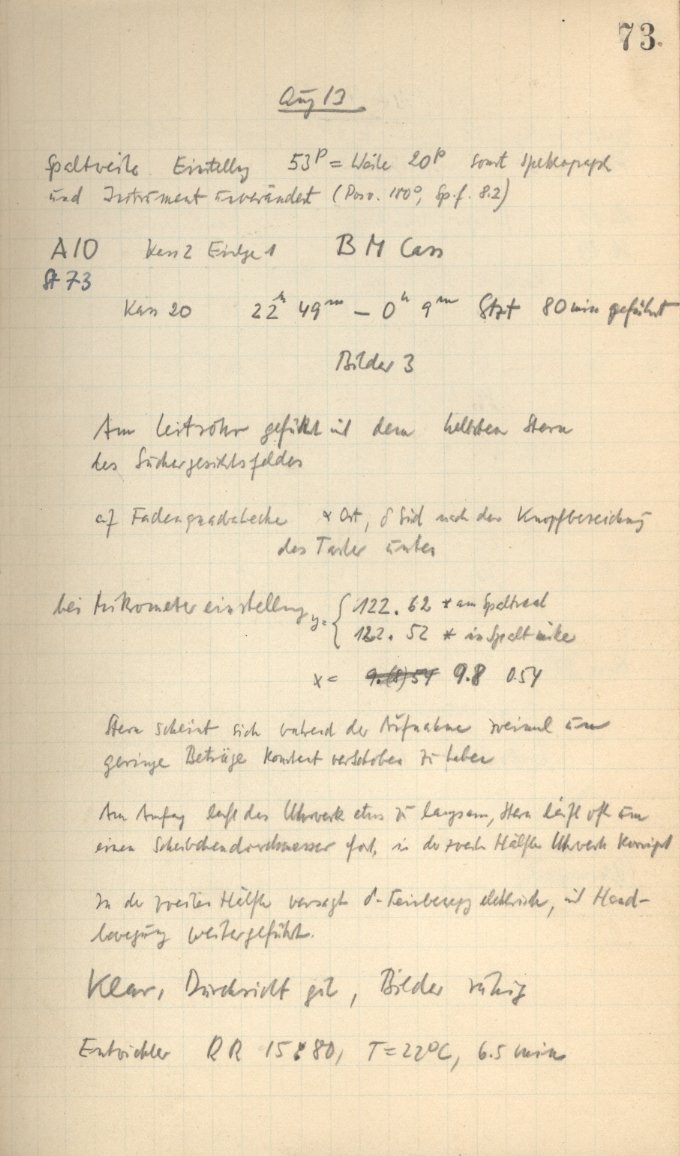 73.
Aug 13
Spaltweite Einstellg 53p = Weite 20p sonst Spektrograph
und Instrument unverändert (Posw. 180°, Sp.f. 8.2)
A10 Kass 2 Einlge 1 BM Cass
St 73
Kass 20 22h 49m – 0h 9m Stzt 80 min geführt
Bilder 3
Am Leitrohr geführt mit dem hellsten Stern
des Suchergesichtsfeldes
auf Fadenquadratecke α Ost, δ Süd nach der Knopfbezeichnung
des Taster unten
bei Mikrometereinstellung y = { 122.62 * am Spaltrand
122.52 * in Spaltmitte
x = 9.8 0.54
Stern scheint sich während der Aufnahme zweimal um
geringe Beträge konstant verschoben zu haben
Am Anfang läuft das Uhrwerk etwas zu langsam, Stern läuft oft um
einen Scheibchendurchmesser fort, in der zweiten Hälfte Uhrwerk korrigiert
In der zweiten Hälfte versagt δ-Feinbewegg elektrisch, mit Hand-
bewegung weitergeführt.
Klar, Durchsicht gut, Bilder ruhig
Entwickler RR 15:80, T=22°C, 6.5 min